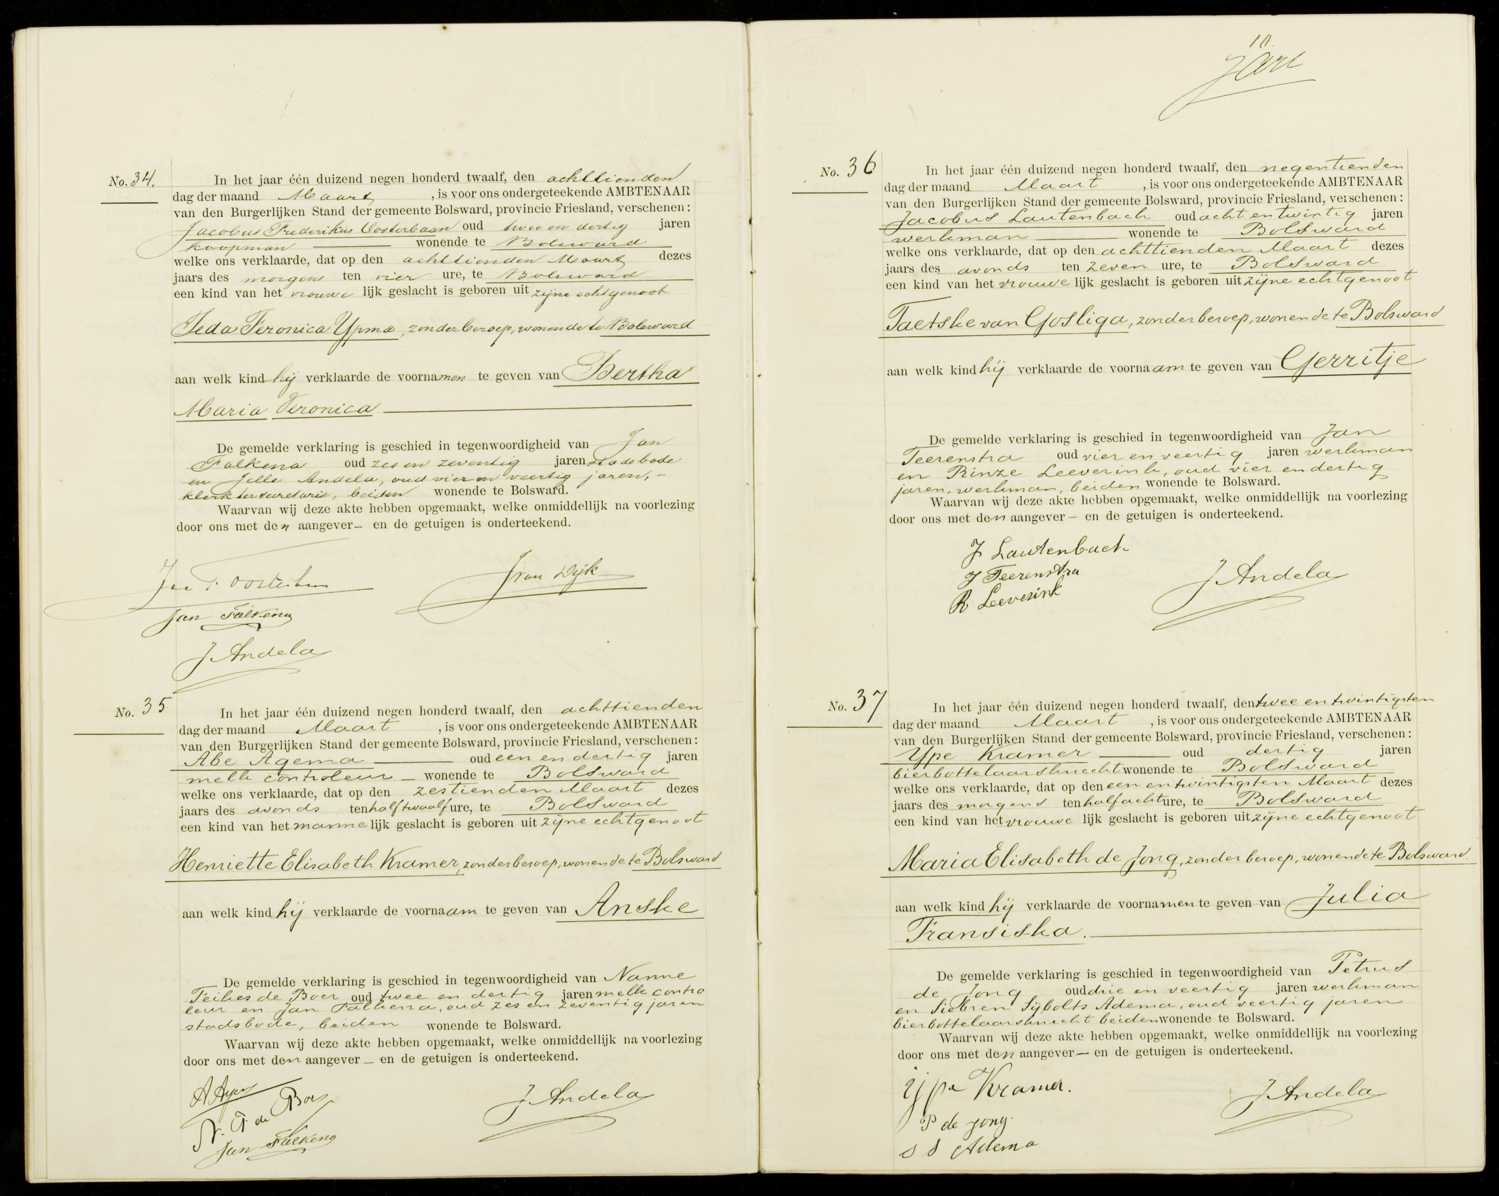 No. 34. In het jaar één duizend negen honderd twaalf, den achttienden
dag der maand Maart, is voor ons ondergeteekende AMBTENAAR
van den Burgerlijken Stand der gemeente Bolsward, provincie Friesland, verschenen:
Jacobus Frederikus Oosterbaan oud twee en dertig jaren
koopman wonende te Bolsward
welke ons verklaarde, dat op den achttienden Maart dezes
jaars des morgens ten vier ure, te Bolsward
een kind van het vrouwelijk geslacht is geboren uit zijne echtgenoot
Ieda Feronica Ypma, zonder beroep, wonende te Bolsward
aan welk kind hij verklaarde de voornamen te geven van Bertha
Maria Veronica
De gemelde verklaring is geschied in tegenwoordigheid van Jan
Falkena oud zes en zeventig jaren stadsbode
en Jelle Andela, oud vier en veertig jaren,
klerk ter secretarie, beiden wonende te Bolsward.
Waarvan wij deze akte hebben opgemaakt, welke onmiddellijk na voorlezing
door ons met den aangever en de getuigen is onderteekend.
J van Dijk
Jan Falkena
J. Andela
No. 35 In het jaar één duizend negen honderd twaalf, den achttienden
dag der maand Maart, is voor ons ondergeteekende AMBTENAAR
van den Burgerlijken Stand der gemeente Bolsward, provincie Friesland, verschenen:
Abe Agema oud een en dertig jaren
melk controleur wonende te Bolsward
welke ons verklaarde, dat op den zestienden Maart dezes
jaars des avonds ten half twaalf ure, te Bolsward
een kind van het mannelijk geslacht is geboren uit zijne echtgenoot
Henriette Elisabeth Kramer, zonder beroep, wonende te Bolsward
aan welk kind hij verklaarde de voornaam te geven van Anske
De gemelde verklaring is geschied in tegenwoordigheid van Nanne
Feikes de Boer oud twee en dertig jaren melk contro
leur en Jan Falkena, oud zes en zeventig jaren
stadsbode, beiden wonende te Bolsward.
Waarvan wij deze akte hebben opgemaakt, welke onmiddellijk na voorlezing
door ons met den aangever en de getuigen is onderteekend.
J. Andela
N. F. de Boer
Jan Falkena
10
No. 36 In het jaar één duizend negen honderd twaalf, den negentienden
dag der maand Maart, is voor ons ondergeteekende AMBTENAAR
van den Burgerlijken Stand der gemeente Bolsward, provincie Friesland, verschenen:
Jacobus Lautenbach oud acht en twintig jaren
werkman wonende te Bolsward
welke ons verklaarde, dat op den achttienden Maart dezes
jaars des avonds ten zeven ure, te Bolsward
een kind van het vrouwelijk geslacht is geboren uit zijne echtgenoot
Taetske van Gosliga, zonder beroep, wonende te Bolsward
aan welk kind hij verklaarde de voornaam te geven van Gerritje
De gemelde verklaring is geschied in tegenwoordigheid van Jan
Teerenstra oud vier en veertig jaren werkman
en Rinze Leeverink, oud vier en dertig
jaren, werkman, beiden wonende te Bolsward.
Waarvan wij deze akte hebben opgemaakt, welke onmiddellijk na voorlezing
door ons met den aangever en de getuigen is onderteekend.
J Lautenbach
J Teerenstra
R Leeverink
J. Andela
No. 37 In het jaar één duizend negen honderd twaalf, den twee en twintigsten
dag der maand Maart, is voor ons ondergeteekende AMBTENAAR
van den Burgerlijken Stand der gemeente Bolsward, provincie Friesland, verschenen:
Ype Kramer oud dertig jaren
bierbottelaarsknecht wonende te Bolsward
welke ons verklaarde, dat op den een en twintigsten Maart dezes
jaars des morgens ten half acht ure, te Bolsward
een kind van het vrouwelijk geslacht is geboren uit zijne echtgenoot
Maria Elisabeth de Jong, zonder beroep, wonende te Bolsward
aan welk kind hij verklaarde de voornamen te geven van Julia
Fransiska.
De gemelde verklaring is geschied in tegenwoordigheid van Petrus
de Jong oud drie en veertig jaren werkman
en Siebren Sijbolts Adema, oud veertig jaren
bierbottelaarsknecht beiden wonende te Bolsward.
Waarvan wij deze akte hebben opgemaakt, welke onmiddellijk na voorlezing
door ons met den aangever en de getuigen is onderteekend.
Ype Kramer.
P de jong
S S Adema
J. Andela